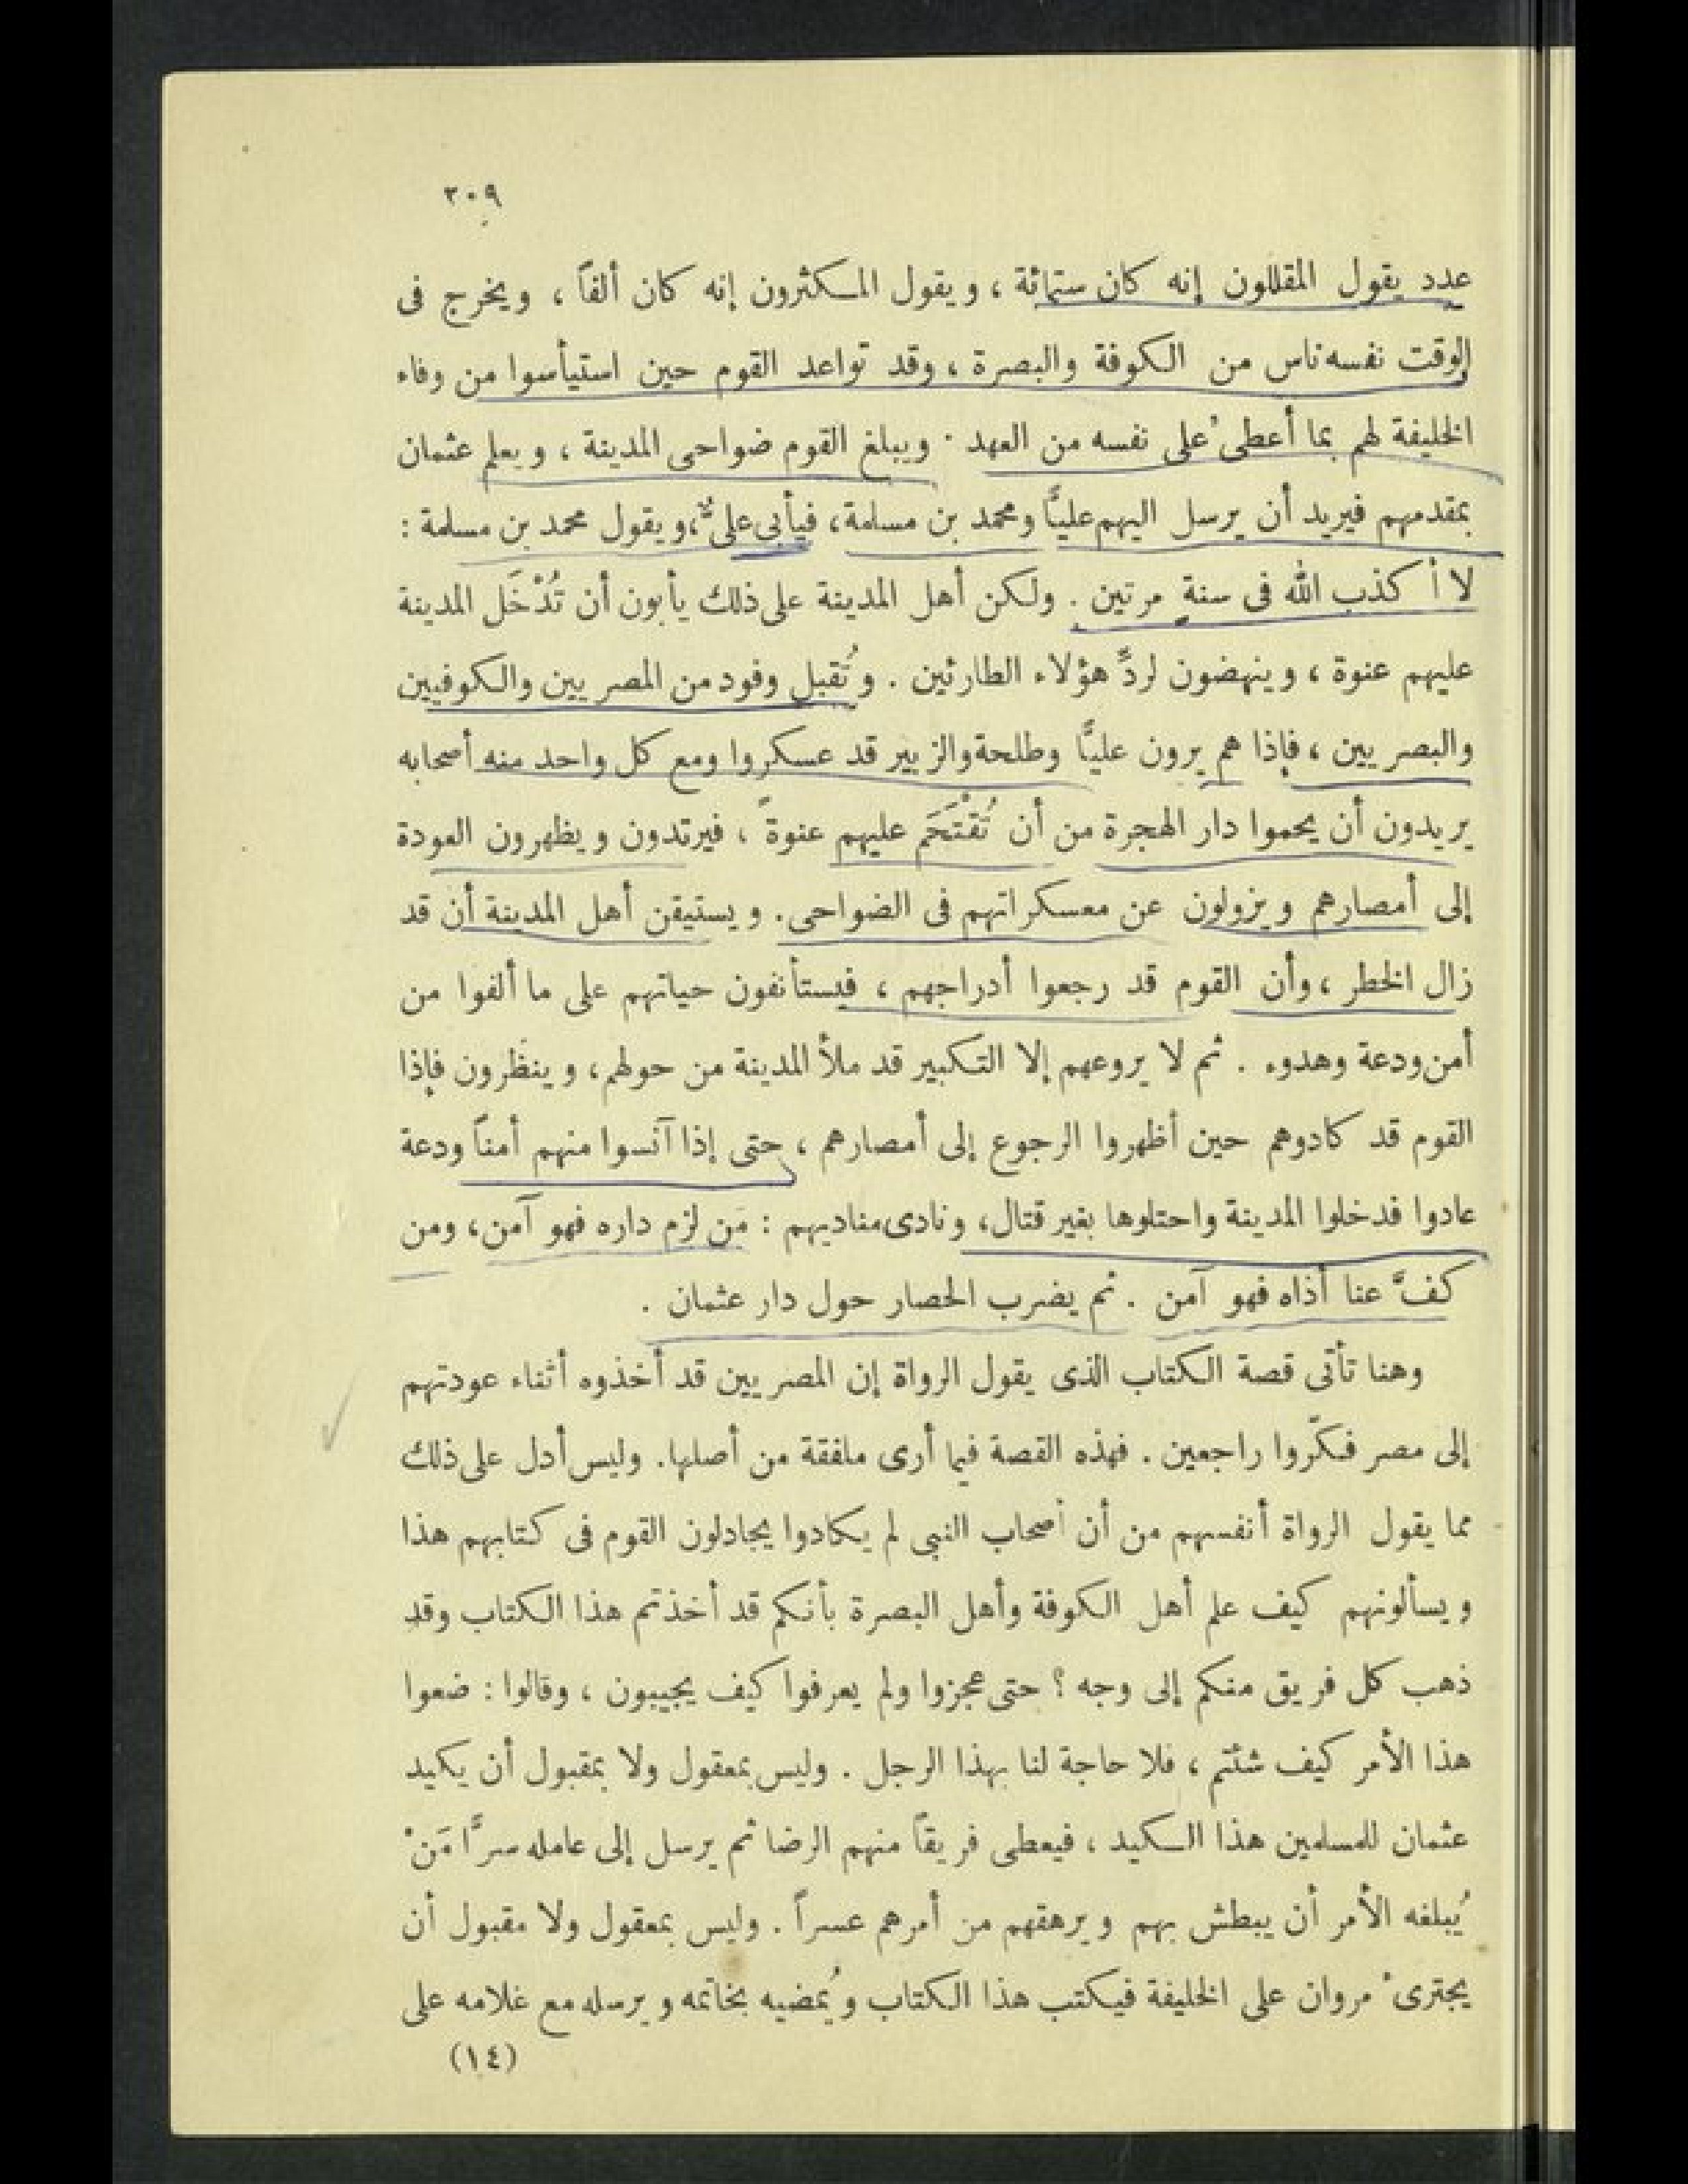 ٢٠٩
عدد يقول المقللون إنه كان ستمائة ، ويقول المكثرون إنه كان ألفاً ، ويخرج فى
الوقت نفسه ناس من الكوفة والبصرة ، وقد تواعد القوم حين استيأسوا من وفاء
الخليفة لهم بما أعطى على نفسه من العهد . ويبلغ القوم ضواحى المدينة ، ويعلم عثمان
بمقدمهم فيريد أن يرسل اليهم عليًّا ومحمد بن مسلمة ، فيأبى علىٌّ ، ويقول محمد بن مسلمة :
لا أكذب الله فى سنة مرتين . ولكن أهل المدينة على ذلك يأبون أن تُدْخَل المدينة
عليهم عنوة ، وينهضون لردِّ هؤلاء الطارئين . وتُقبل وفود من المصريين والكوفيين
والبصريين ، فإذا هم يرون عليًّا وطلحة والزبير قد عسكروا ومع كل واحد منه أصحابه
يريدون أن يحموا دار الهجرة من أن تُقْتَحَم عليهم عنوةً ، فيرتدون ويظهرون العودة
إلى أمصارهم ويزولون عن معسكراتهم فى الضواحى . ويستيقن أهل المدينة أن قد
زال الخطر ، وأن القوم قد رجعوا أدراجهم ، فيستأنفون حياتهم على ما ألفوا من
أمن ودعة وهدوء . ثم لا يروعهم إلا التكبير قد ملأ المدينة من حولهم ، وينظرون فإذا
القوم قد كادوهم حين أظهروا الرجوع إلى أمصارهم ، حتى إذا آنسوا منهم أمناً ودعة
عادوا فدخلوا المدينة واحتلوها بغير قتال ، ونادى مناديهم : مَن لزم داره فهو آمن ، ومن
كفَّ عنا أذاه فهو آمن . ثم يضرب الحصار حول دار عثمان .
وهنا تأتى قصة الكتاب الذى يقول الرواة إن المصريين قد أخذوه أثناء عودتهم
إلى مصر فكرّوا راجعين . فهذه القصة فيما أرى ملفقة من أصلها . وليس أدل على ذلك
مما يقول الرواة أنفسهم من أن أصحاب النبى لم يكادوا يجادلون القوم فى كتابهم هذا
ويسألونهم كيف علم أهل الكوفة وأهل البصرة بأنكم قد أخذتم هذا الكتاب وقد
ذهب كل فريق منكم إلى وجه ؟ حتى عجزوا ولم يعرفوا كيف يجيبون ، وقالوا : ضعوا
هذا الأمر كيف شئتم ، فلا حاجة لنا بهذا الرجل . وليس بمعقول ولا بمقبول أن يكيد
عثمان للمسلمين هذا الكيد ، فيعطى فريقاً منهم الرضا ثم يرسل إلى عامله سرًّا مَنْ
يُبلغه الأمر أن يبطش بهم ويرهقهم من أمرهم عسراً . وليس بمعقول ولا مقبول أن
يجترئ مروان على الخليفة فيكتب هذا الكتاب ويُمضيه بخاتمه ويرسله مع غلامه على
(١٤)